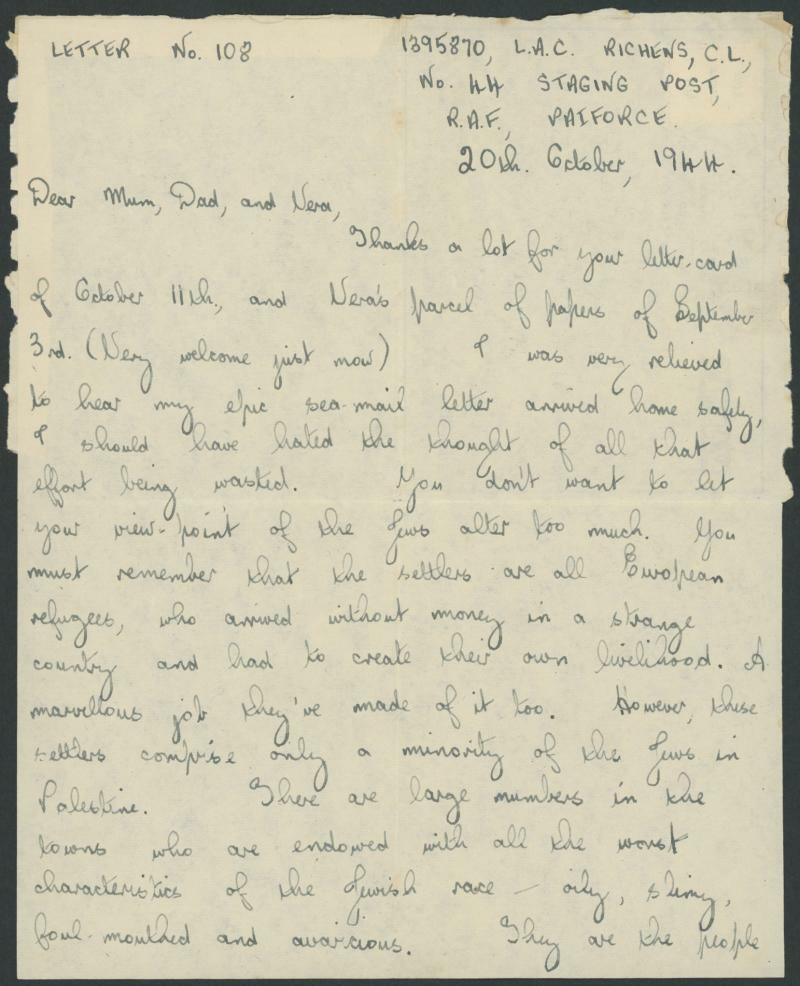 LETTER No. 108
1395870, L.A.C. RICHENS, C.L.,
No. 44 STAGING POST,
R.A.F., PAIFORCE.
20th. October, 1944.
Dear Mum, Dad, and Vera,
Thanks a lot for your letter-card
of October 11th., and Vera's parcel of papers of September
3rd. (Very welcome just now) I was very relieved
to hear my epic sea-mail letter arrived home safely,
I should have hated the thought of all that
effort being wasted. You don't want to let
your view-point of the Jews alter too much. You
must remember that the settlers are all European
refugees, who arrived without money in a strange
country and had to create their own livelihood. A
marvellous job they've made of it too. However, these
settlers comprise only a minority of the Jews in
Palestine. There are large numbers in the
towns who are endowed with all the worst
characteristics of the Jewish race – oily, slimy,
foul-mouthed and avaricious. They are the people